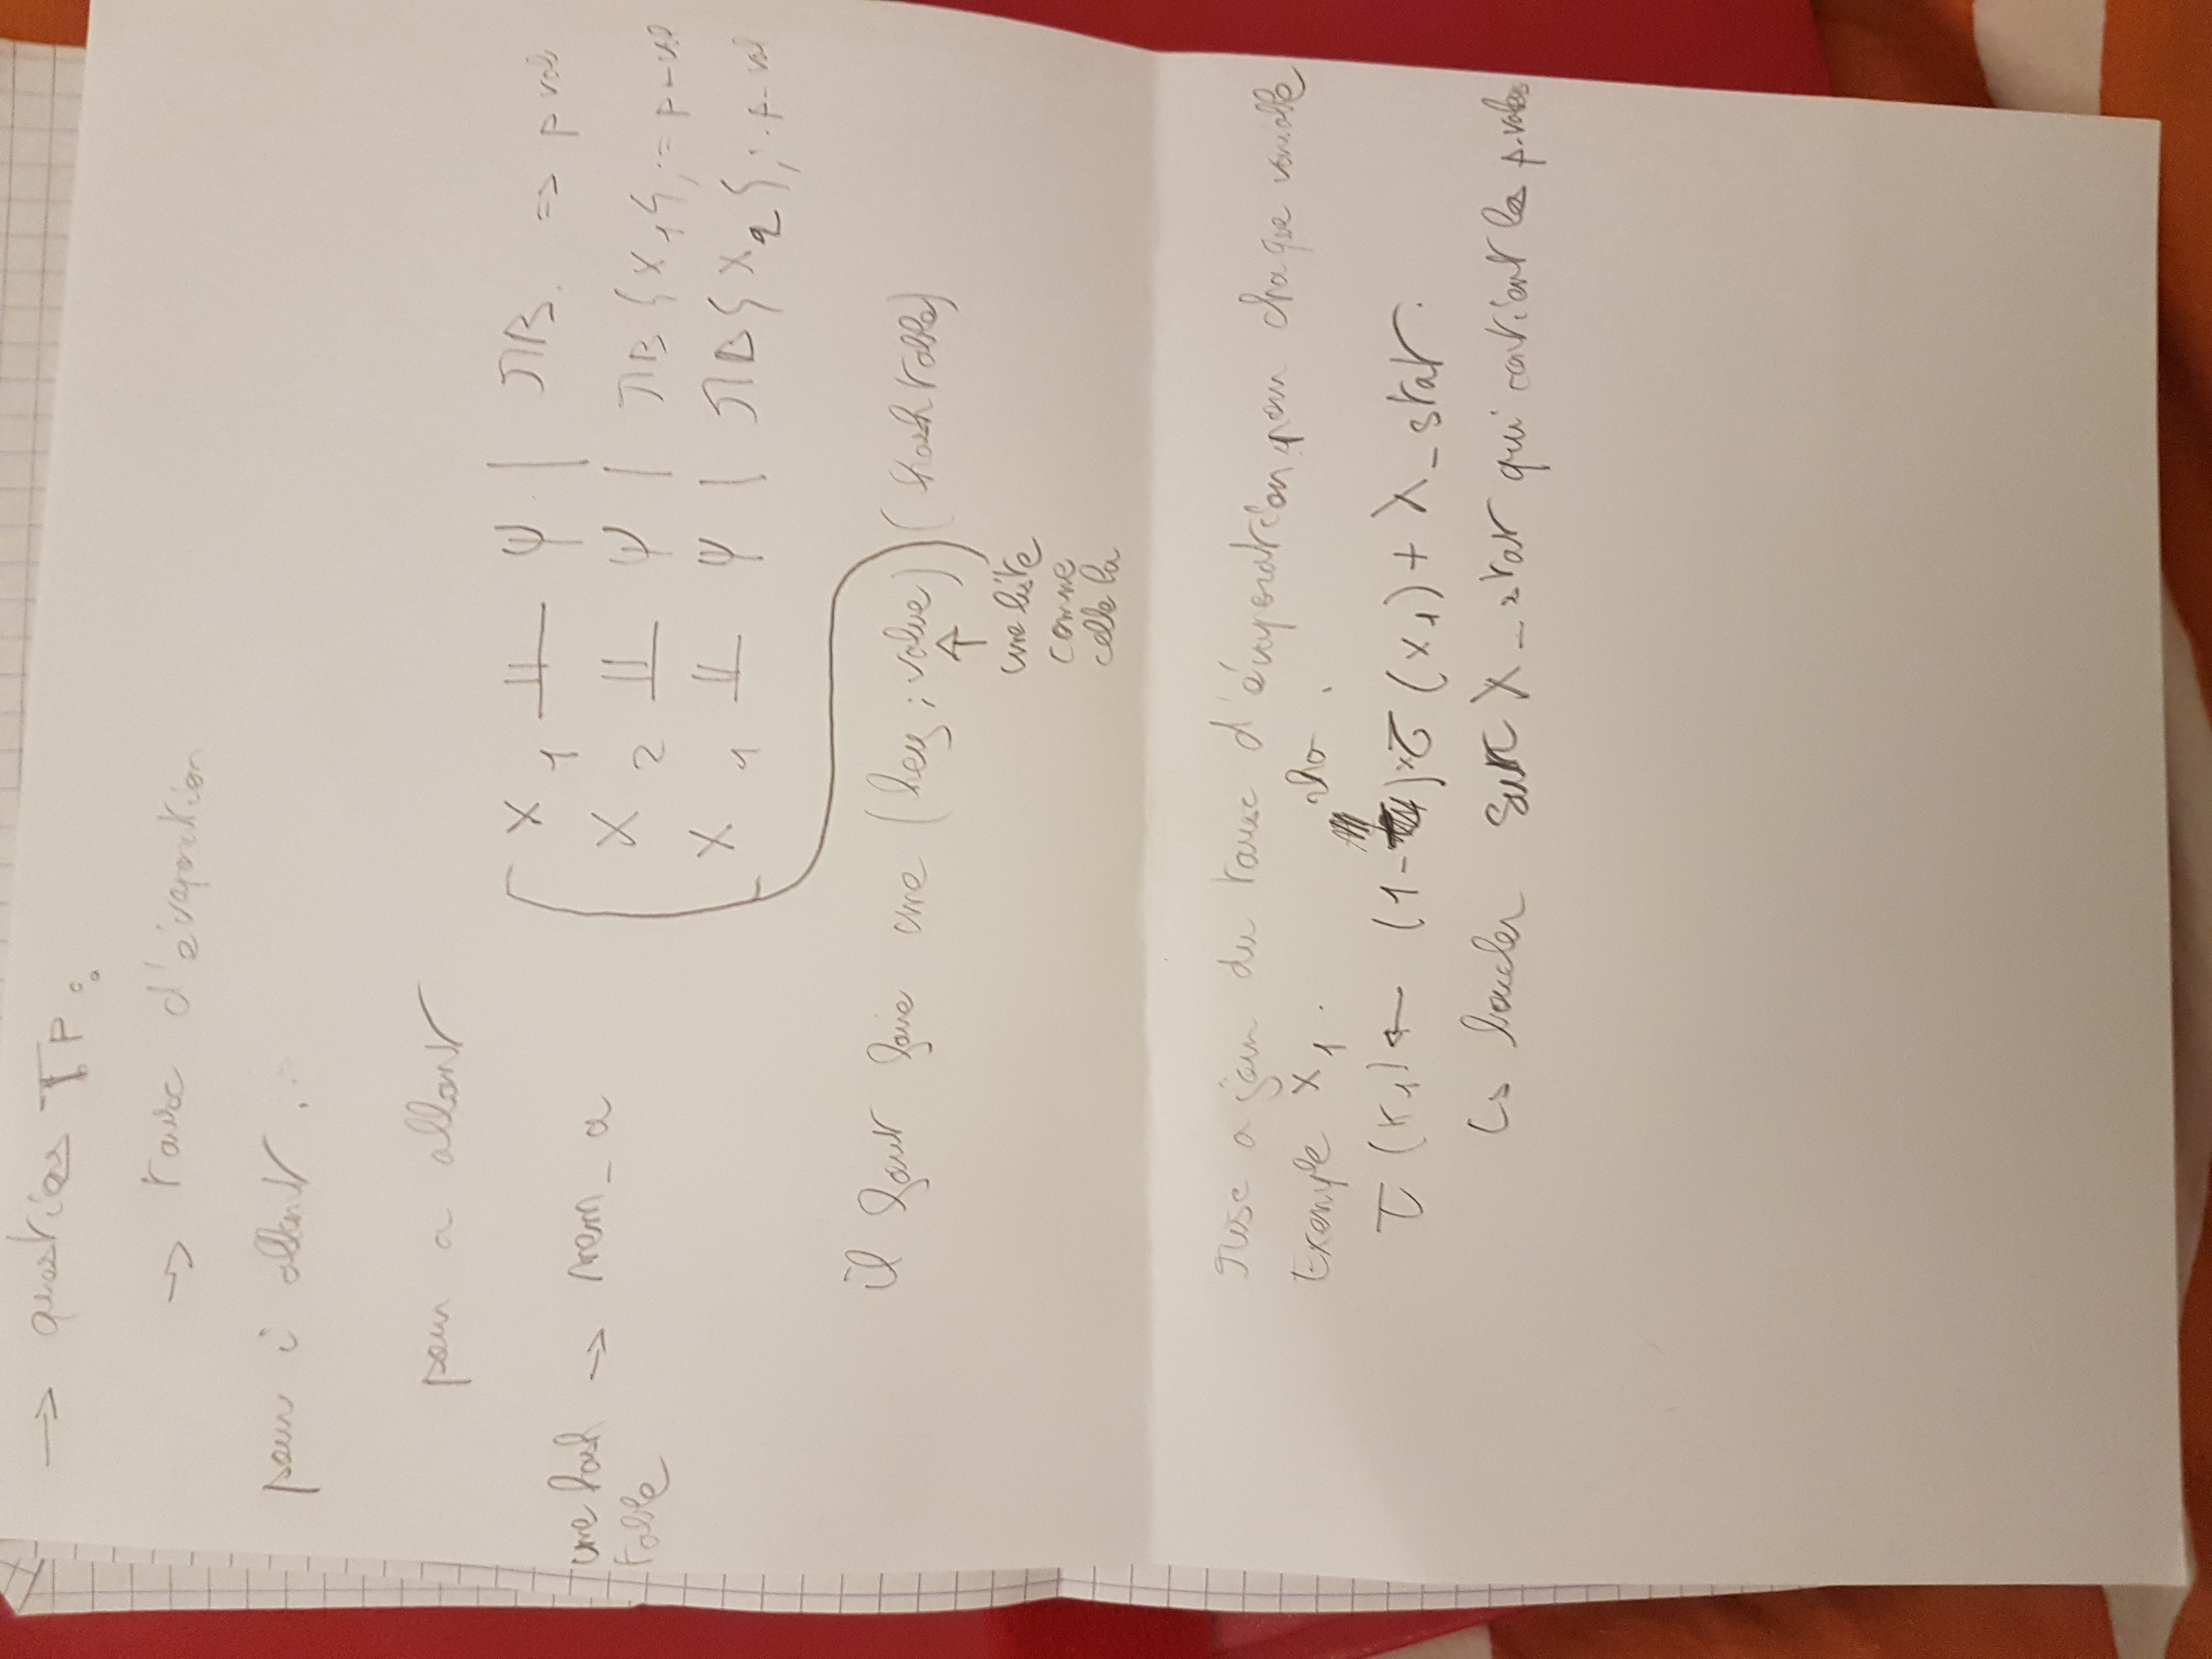 → questions TP :
→ taux d'évaporation
pour i allant . .
pour a allant
X 1 ⫫ Ψ | MB. => p val
une hash table → mem_a
X 2 ⫫ Ψ | MB {X 1}, := p-val
X 1 ⫫ Ψ | MB {X 2}, : p-val
il faut faire une (key ; value) (hash table)
↑
une liste
comme
celle la
Mise a jour du taux d'évaporation pour chaque variable
Exemple X 1 . rho .
τ (X 1) ← (1- ) × τ (X 1) + λ_stat .
↳ boucler sur λ_stat qui contient les p-values